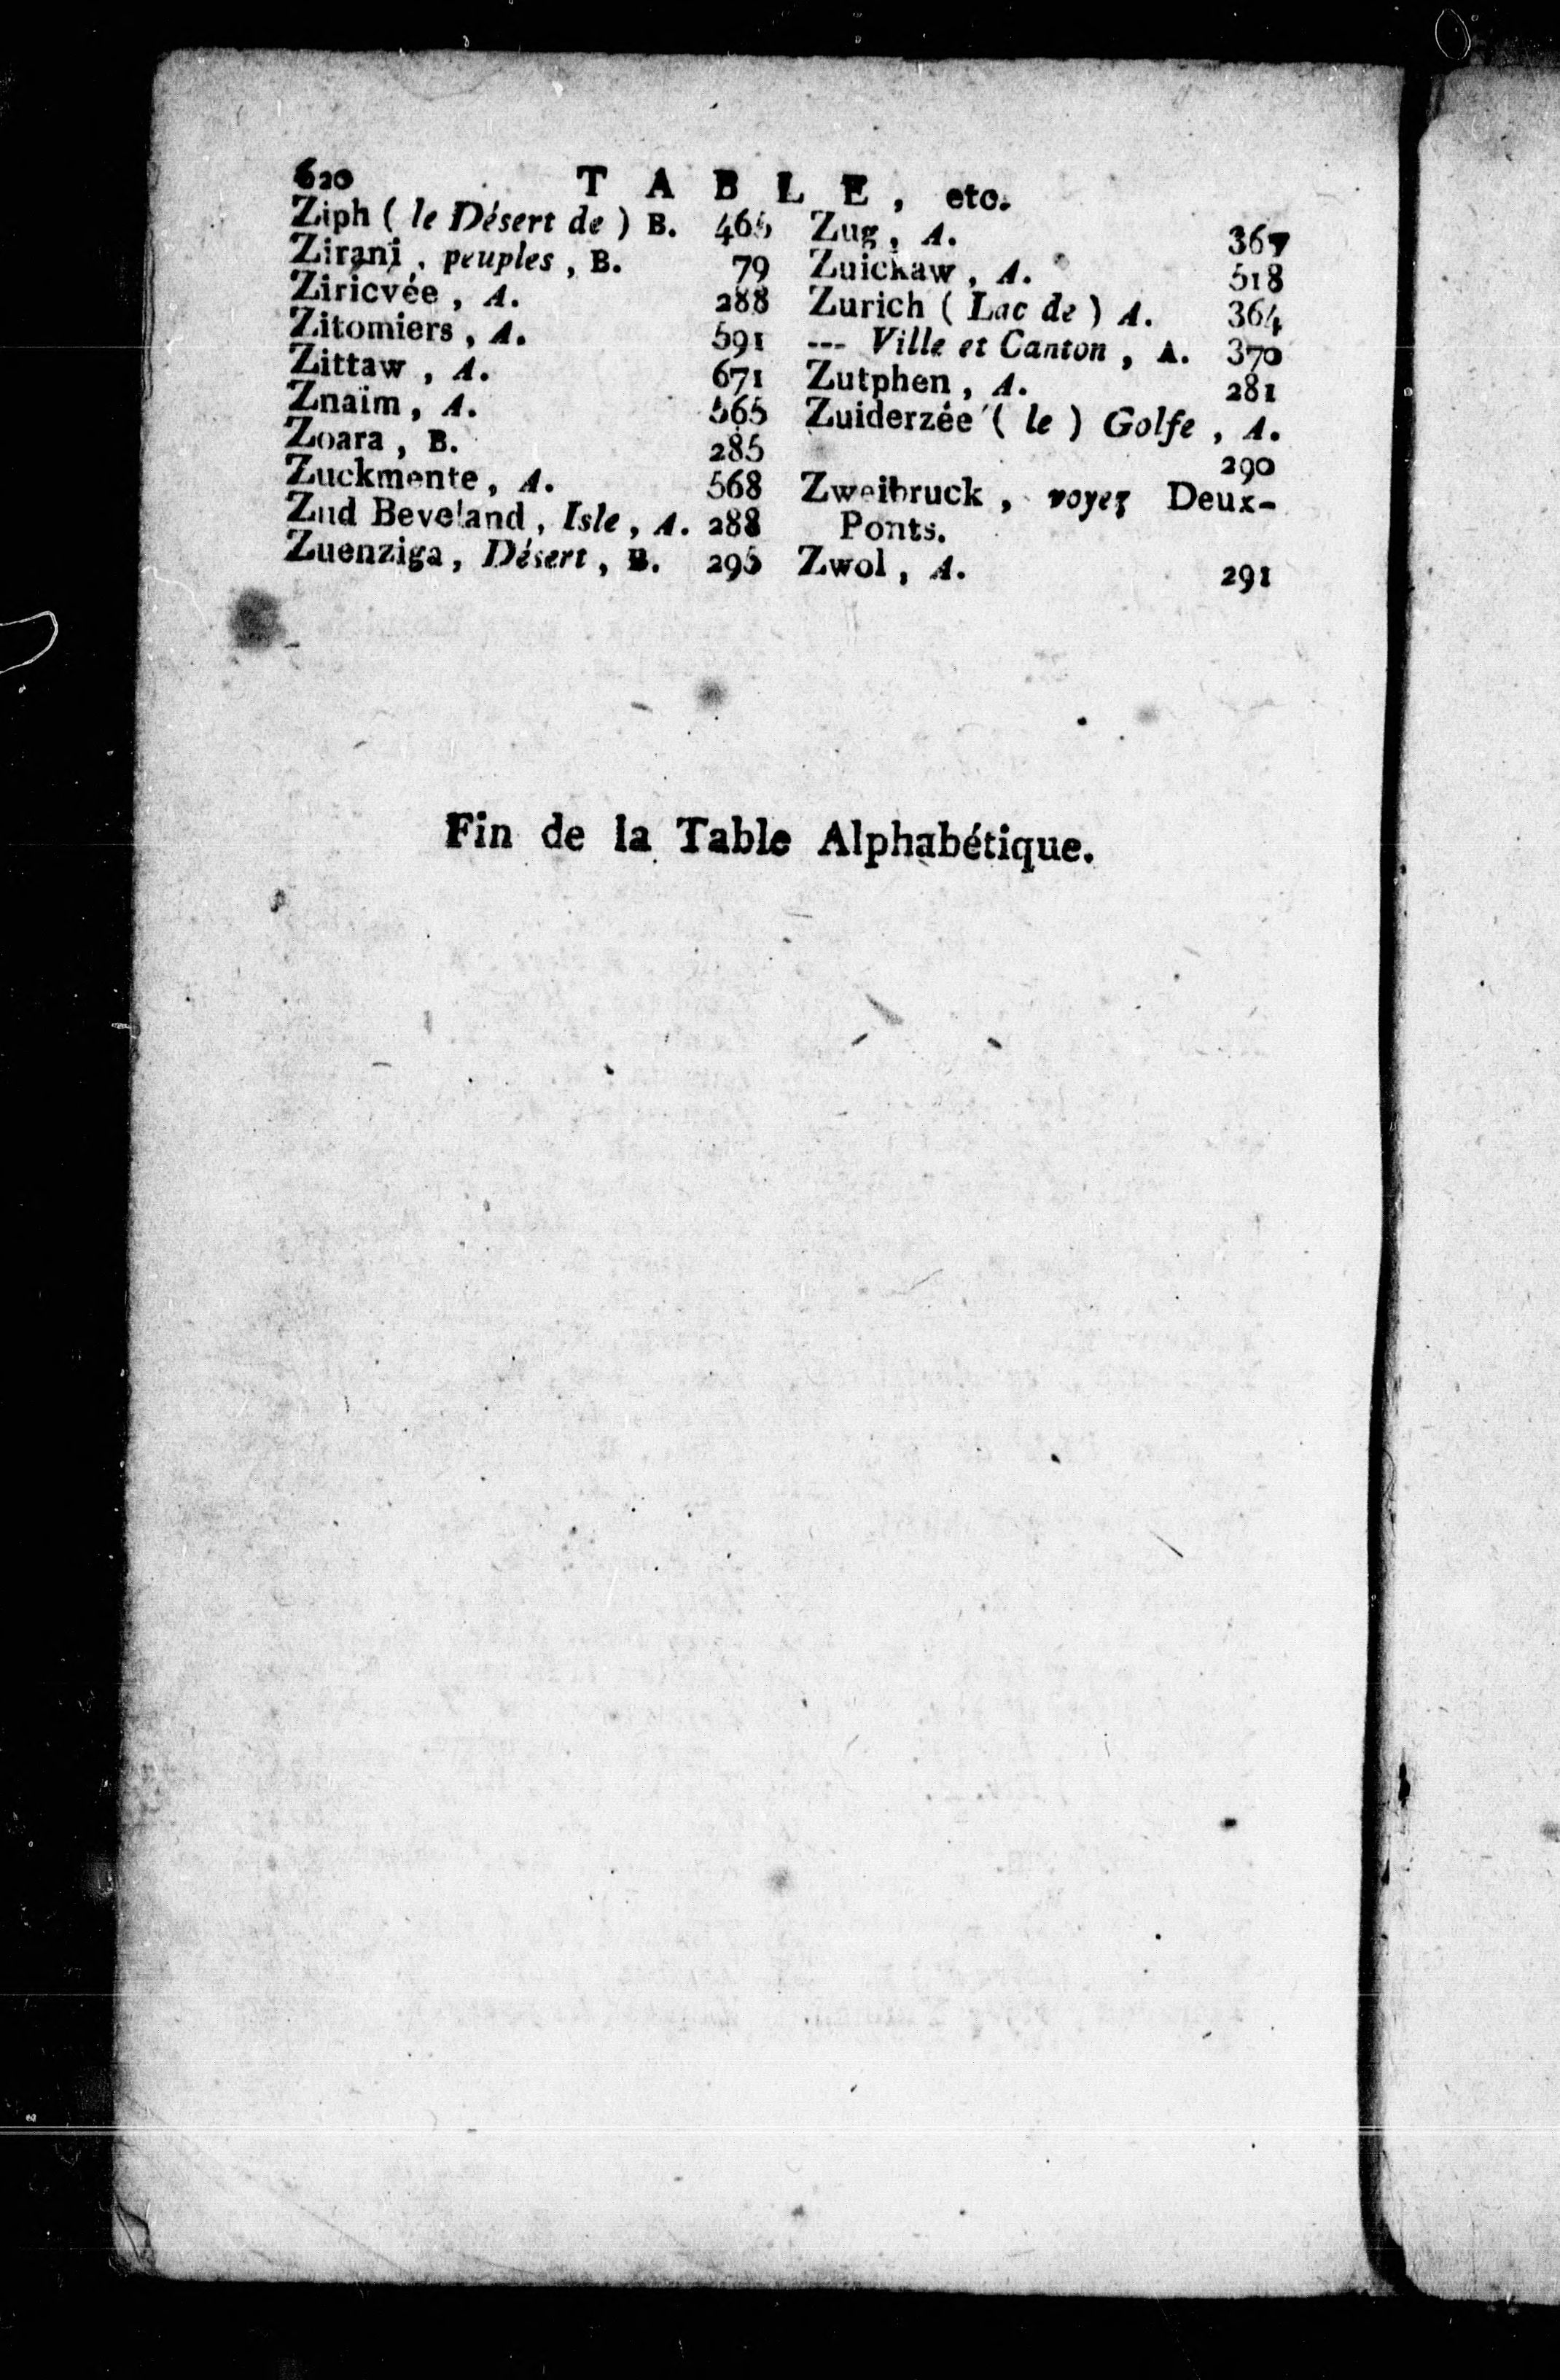 620 TABLE, etc.
Ziph ( le Désert de ) B. 465
Zirani, peuples, B. 79
Ziricvée, A. 288
Zitomiers, A. 591
Zittaw, A. 671
Znaïm, A. 565
Zoara, B. 285
Zuckmente, A. 568
Zud Beveland, Isle, A. 288
Zuenziga, Désert, B. 295
Zug, A. 367
Zuickaw, A. 518
Zurich ( Lac de ) A. 364
--- Ville et Canton, A. 370
Zutphen, A. 281
Zuiderzée ( le ) Golfe, A.
290
Zweibruck, voyez Deux-
Ponts.
Zwol, A. 291
Fin de la Table Alphabétique.